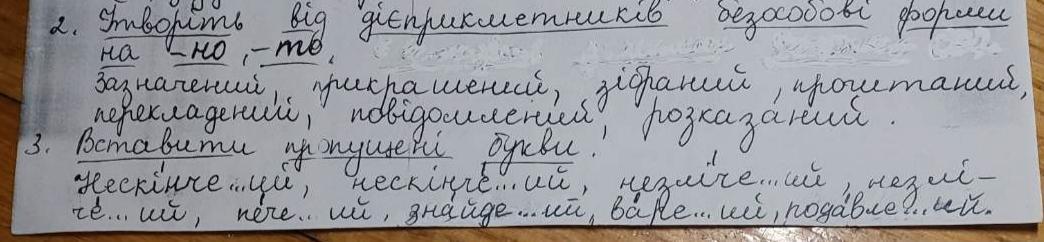 2. Утворіть від дієприкметників безособові форми
на -но, -то.
Зазначений, прикрашений, зібраний, прочитаний,
перекладений, повідомлений, розказаний.
3. Вставити пропущені букви.
Нескінче...ий, нескінче́...ий, незліче...ий, незлі-
че́...ий, пече...ий, зна́йде...ий, ва́ре...ий, пода́вле...ий.